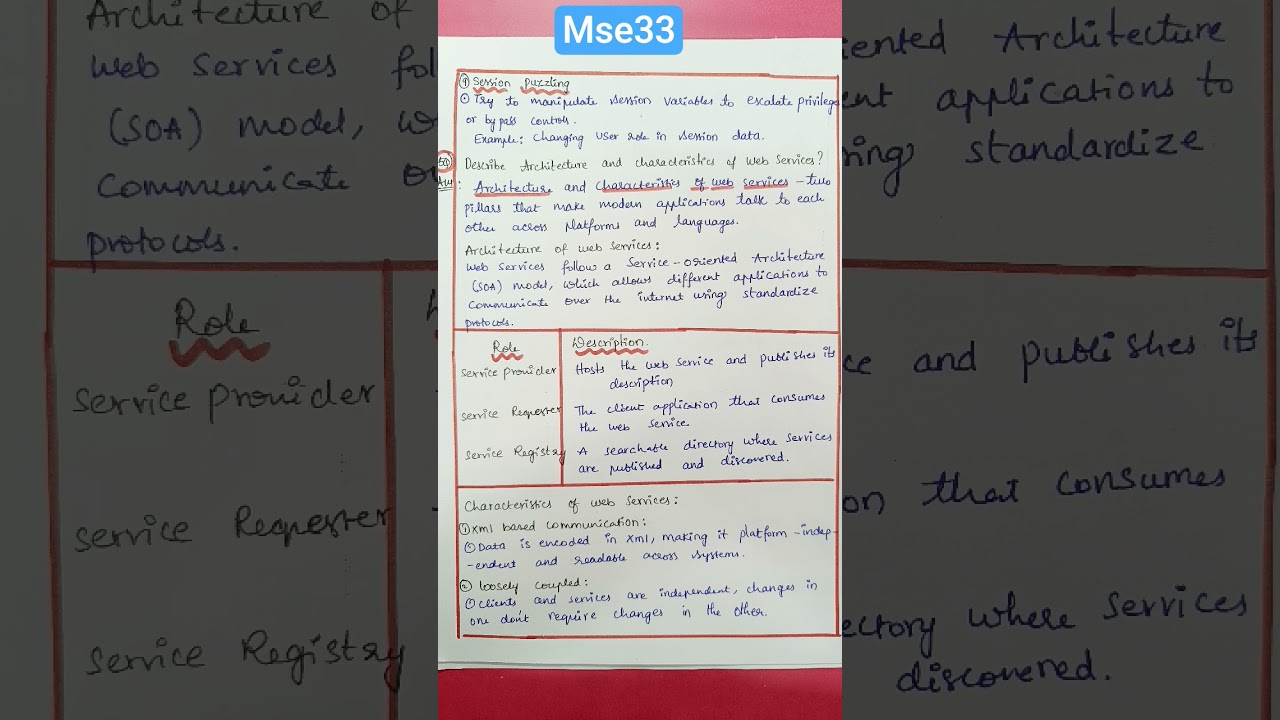 Mse33
④ Session puzzling
① Try to manipulate session variables to escalate privileg
or bypass controls.
Example: Changing user role in session data.
Describe Architecture and characteristics of Web Services?
: Architecture and Characteristics of web services – two
pillars that make modern applications talk to each
other across platforms and languages.
Architecture of web Services:
Web Services follow a Service-oriented Architecture
(SOA) model, which allows different applications to
Communicate over the internet using standardize
protocols.
Role Description.
Service provider Hosts the web service and publishes its
description
Service Requester The client application that consumes
the web service
Service Registry A searchable directory where services
are published and discovered.
Characteristics of web Services:
① xml based communication:
① Data is encoded in xml, making it platform -indep-
-endent and readable across systems.
② loosely coupled:
① clients and services are independent, changes in
one don't require changes in the other.
Architecture of
web Services fol
(SOA) model, w
Communicate
protocols.
Role
Service provider
Service Requester
Service Registry
iented Architecture
ent applications to
ing standardize
ce and publishes its
on that consumes
ectory where services
discovered.